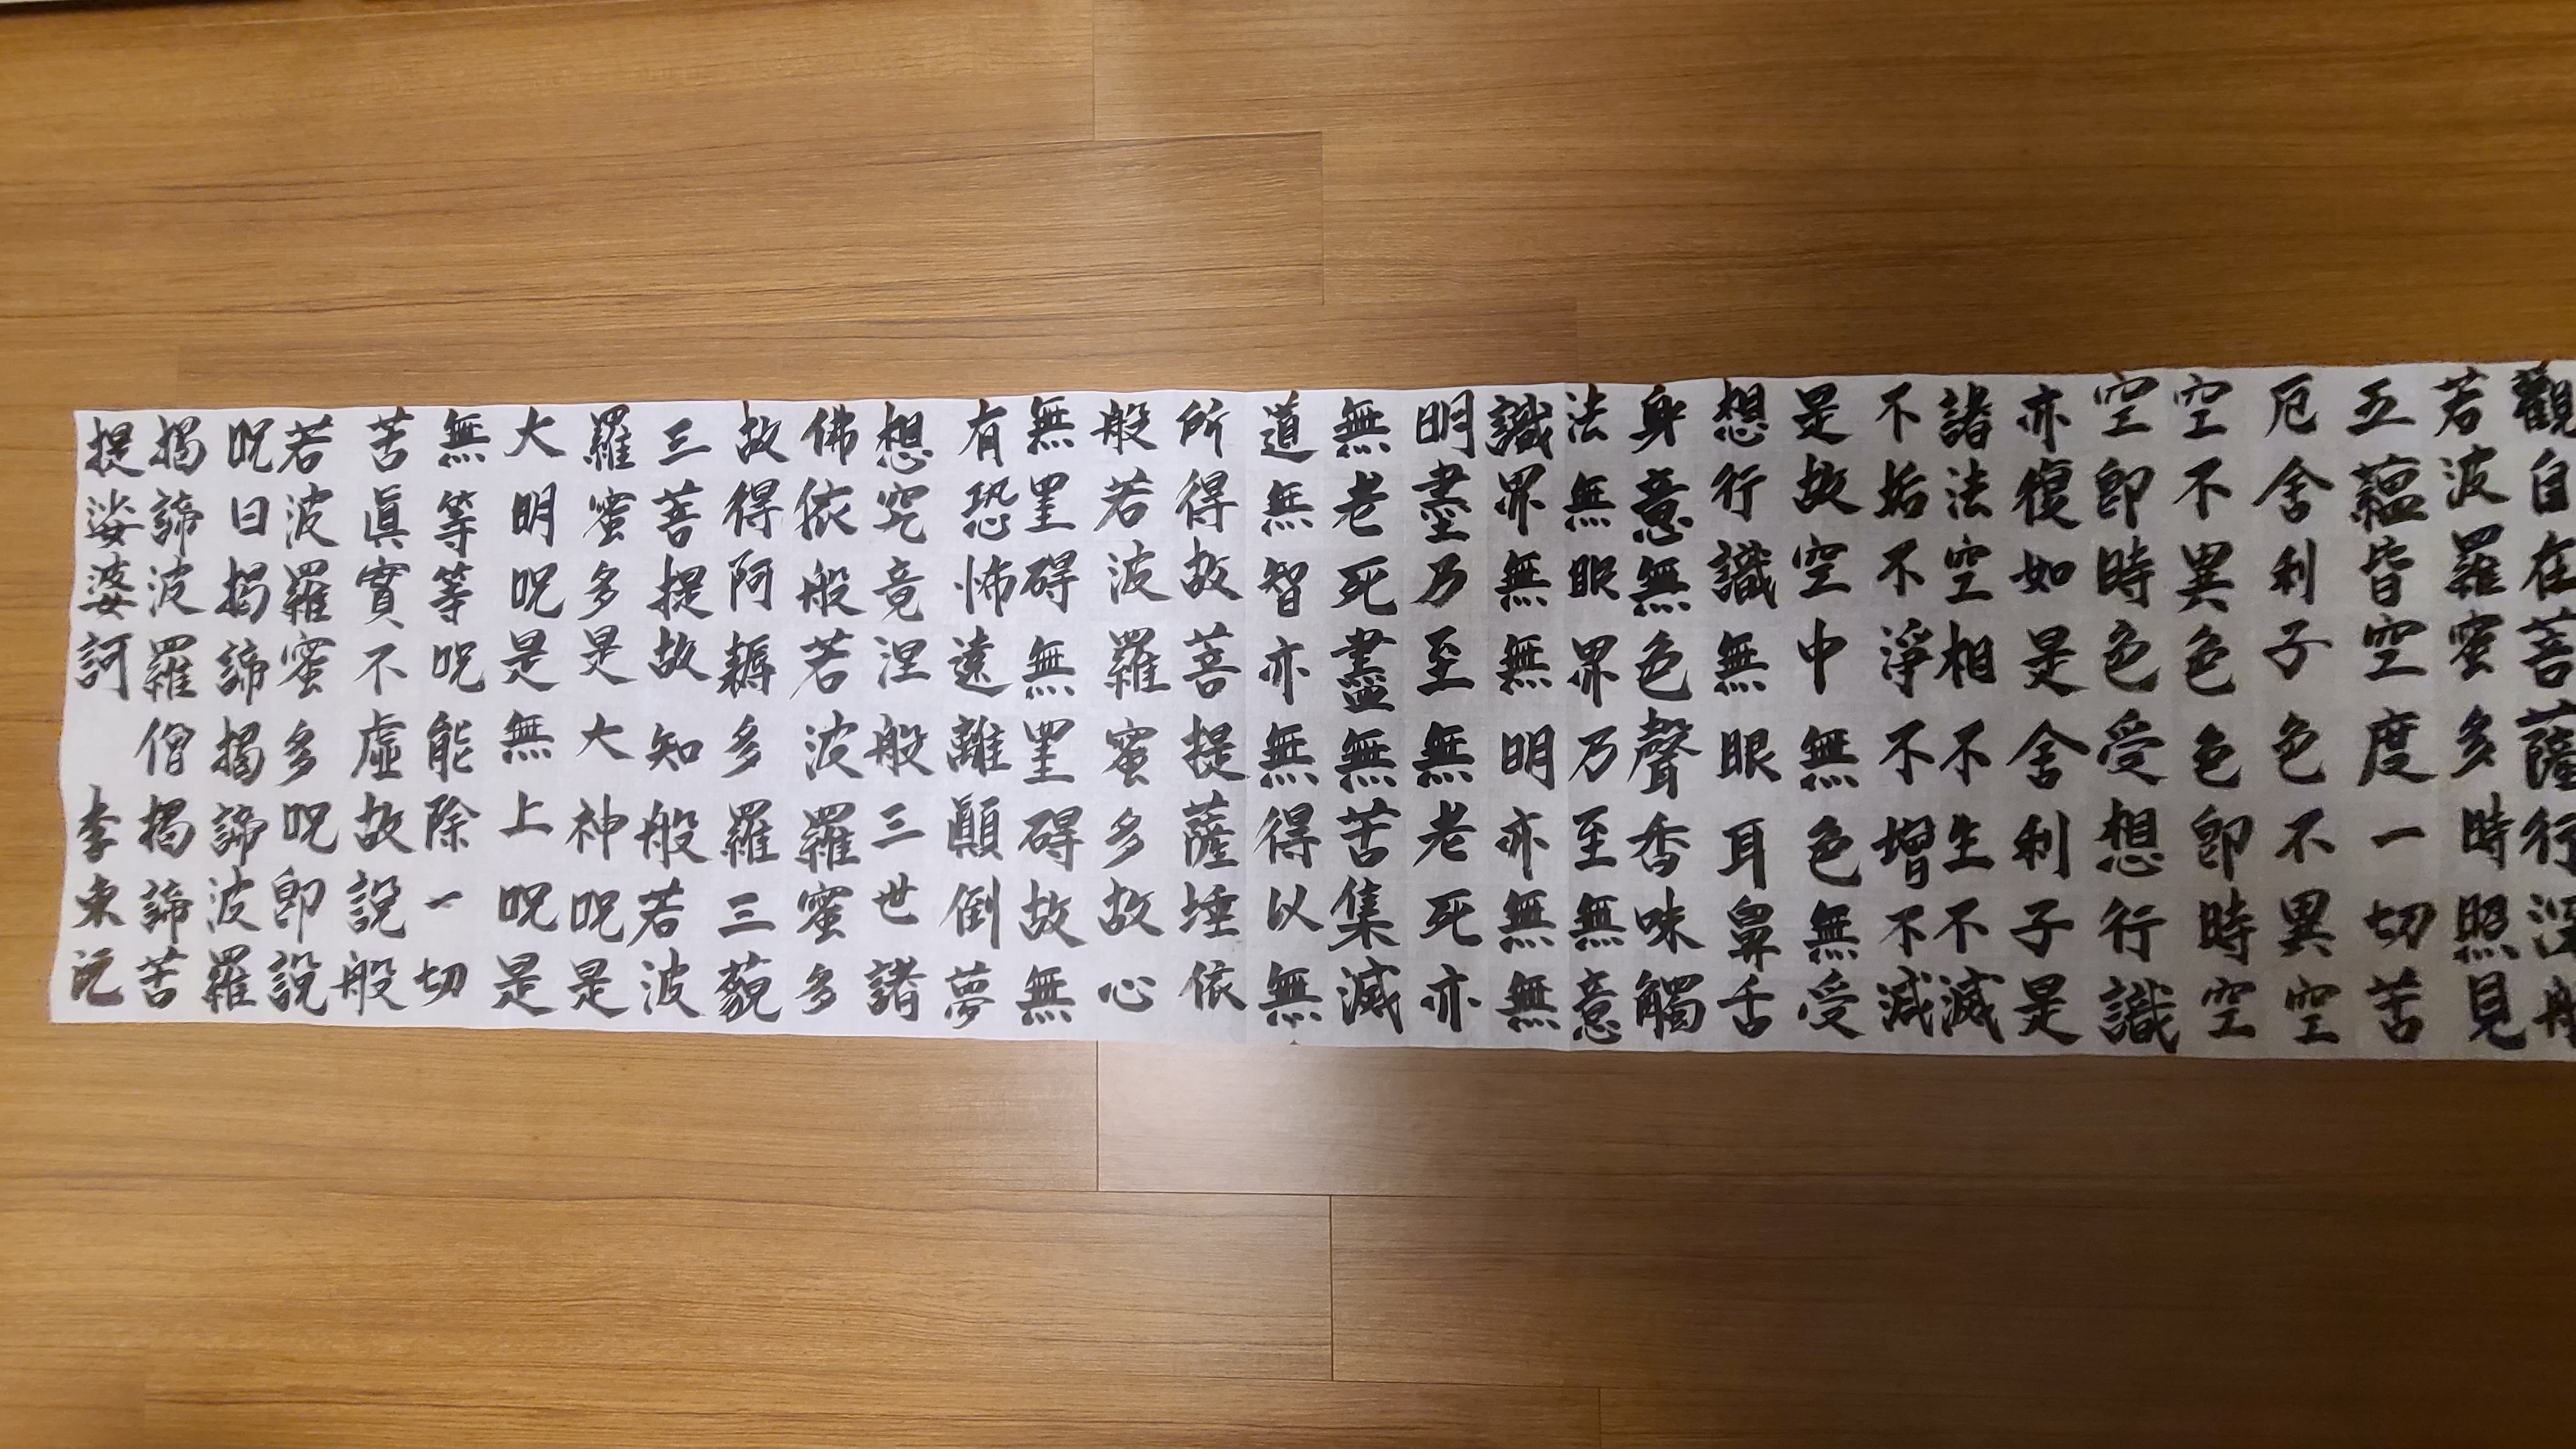 觀自在菩薩行深般
若波羅蜜多時照見
五蘊皆空度一切苦
厄舍利子色不異空
空不異色色即時空
空即時色受想行識
亦復如是舍利子是
諸法空相不生不滅
不垢不淨不增不減
是故空中無色無受
想行識無眼耳鼻舌
身意無色聲香味觸
法無眼界乃至無意
識界無無明亦無無
明盡乃至無老死亦
無老死盡無苦集滅
道無智亦無得以無
所得故菩提薩埵依
般若波羅蜜多故心
無罣碍無罣碍故無
有恐怖遠離顛倒夢
想究竟涅般三世諸
佛依般若波羅蜜多
故得阿耨多羅三藐
三菩提故知般若波
羅蜜多是大神呪是
大明呪是無上呪是
無等等呪能除一切
苦眞實不虛故說般
若波羅蜜多呪即說
呪曰揭諦揭諦波羅
揭諦波羅僧揭諦苦
提娑婆訶 李東